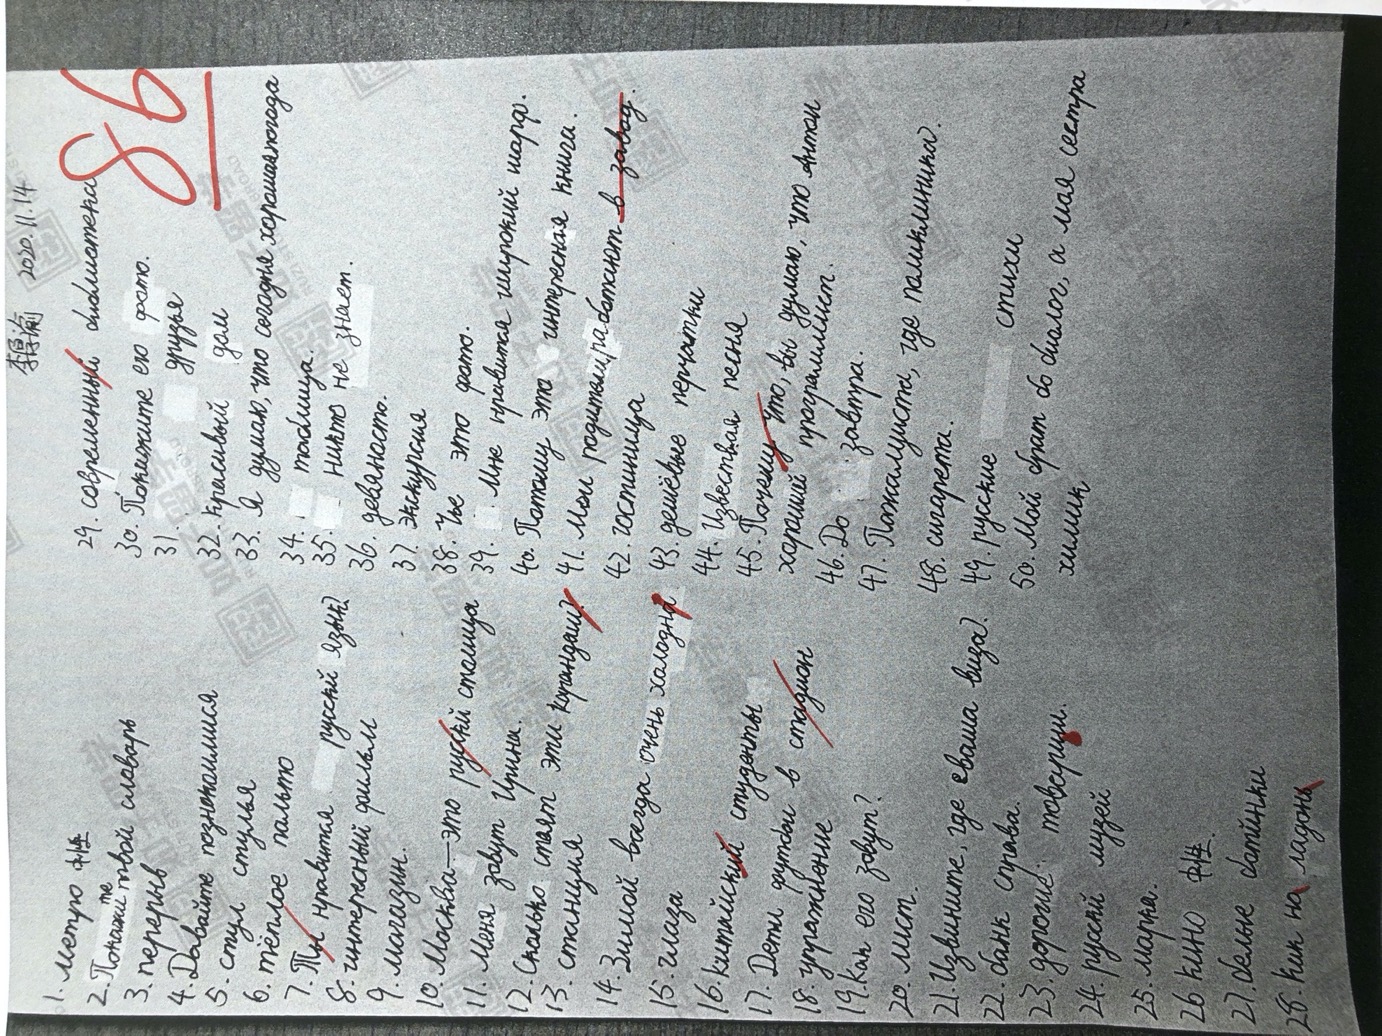 2020.11.14
86
1. метро 中性
2. Покажите твой словарь
3. перерыв
4. Давайте познокомимся
5. стул стулья
6. тёплое пальто
7. Ты нравится русскй язык?
8. интересный фильм
9. магазин.
10. Москва—это русскй столица
11. Меня завут Ирина.
12. Сколько стаят эти корандаш?
13. станция
14. Зимой всегда очень халодна
15. глаза
16. китайский студенты
17. Дети футбол в стадион
18. упражнение
19. Как его завут?
20. лист.
21. Извините, где ваша виза?
22. банк справа.
23. дорогие товарищи.
24. рускй музей
25. марка.
26 кино 中性.
27. белые батинки
28. Кик на ладонь
29. современный библиотека
30. Покажите его фото.
31 друзья
32. красивый дом
33. Я думаю, что сегодня хорошая погода
34. таблица.
35. никто не знает.
36. девяносто.
37. экскурсия
38. Чьё это фото.
39. Мне нравится широкий шарф.
40. Потому это интересная книга.
41. Мои родители работают в завод.
42. гостиница
43. дешёвые перчатки
44. Известная песня
45. Почему что, вы думаю, что Антон
хороший программист.
46. До завтра.
47. Пожалуиста, где поликлиника?
48. сигарета.
49. русские стихи
50. Мой брат биолог, а моя сестра
химик